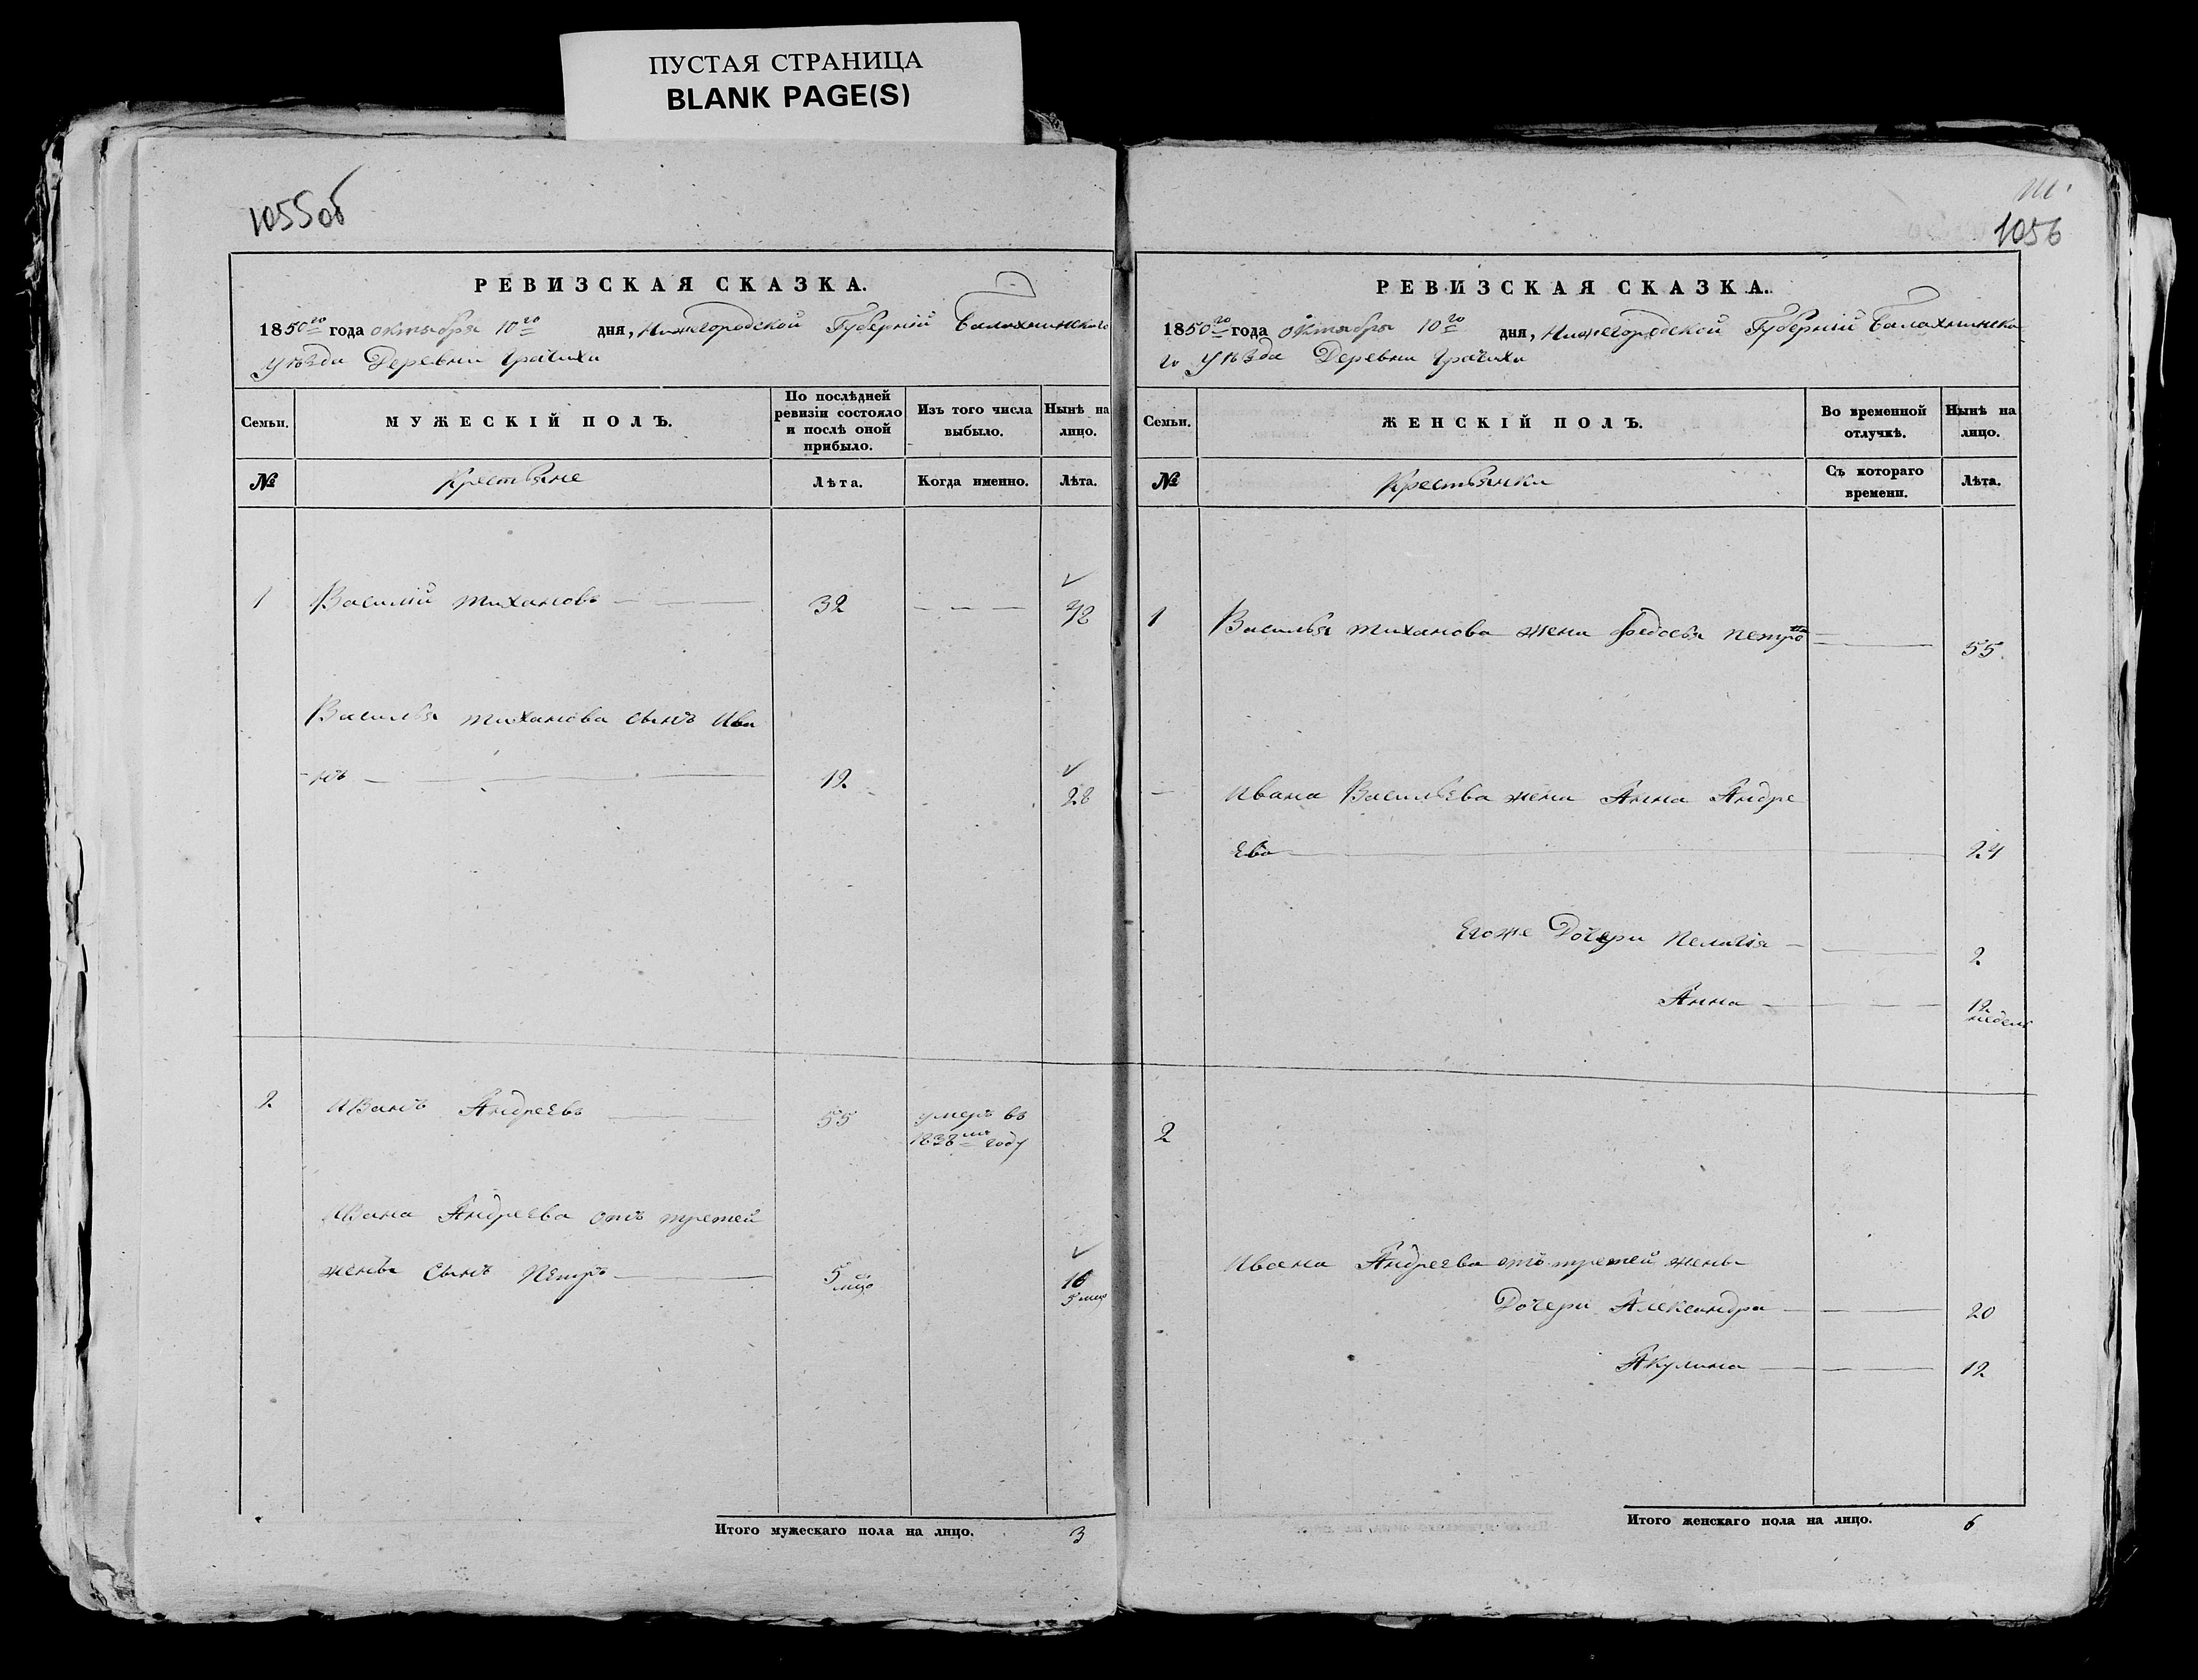 ПУСТАЯ СТРАНИЦА
BLANK PAGE(S)
1055об
РЕВИЗСКАЯ СКАЗКА.
1850го года октября 10го дня, Нижегородской Губернiй Балахнинского
уѣзда Деревни Грачихи
Семьи.
МУЖЕСКІЙ ПОЛЪ.
По послѣдней ревизіи состояло и послѣ оной прибыло.
Изъ того числа выбыло.
Нынѣ на лицо.
№
Крестьяне
Лѣта.
Когда именно.
Лѣта.
1 Василій Тихановъ 32 48
Василья Тиханова сынъ Ива
нъ 12 28
2 Иванъ Андреевъ 55 умеръ въ
1838мъ году
Ивана Андреева отъ третей
жены сынъ Петръ 5 мцо 16
5 мцо
Итого мужескаго пола на лицо. 3
1056
РЕВИЗСКАЯ СКАЗКА.
1850го года октября 10го дня, Нижегородской Губернiй Балахнинска
го уѣзда Деревни Грачихи
Семьи.
ЖЕНСКІЙ ПОЛЪ.
Во временной отлучкѣ.
Нынѣ на лицо.
№
Крестьянки
Съ котораго времени.
Лѣта.
1 Василья Тиханова жена Федосья Петрова 55
Ивана Васильева жена Анна Андре
ева 24
Егоже Дочери Пелагія 2
Анна 12
недель
2
Ивана Андреева отъ третей жены
Дочери Александра 20
Акулина 19
Итого женскаго пола на лицо. 6